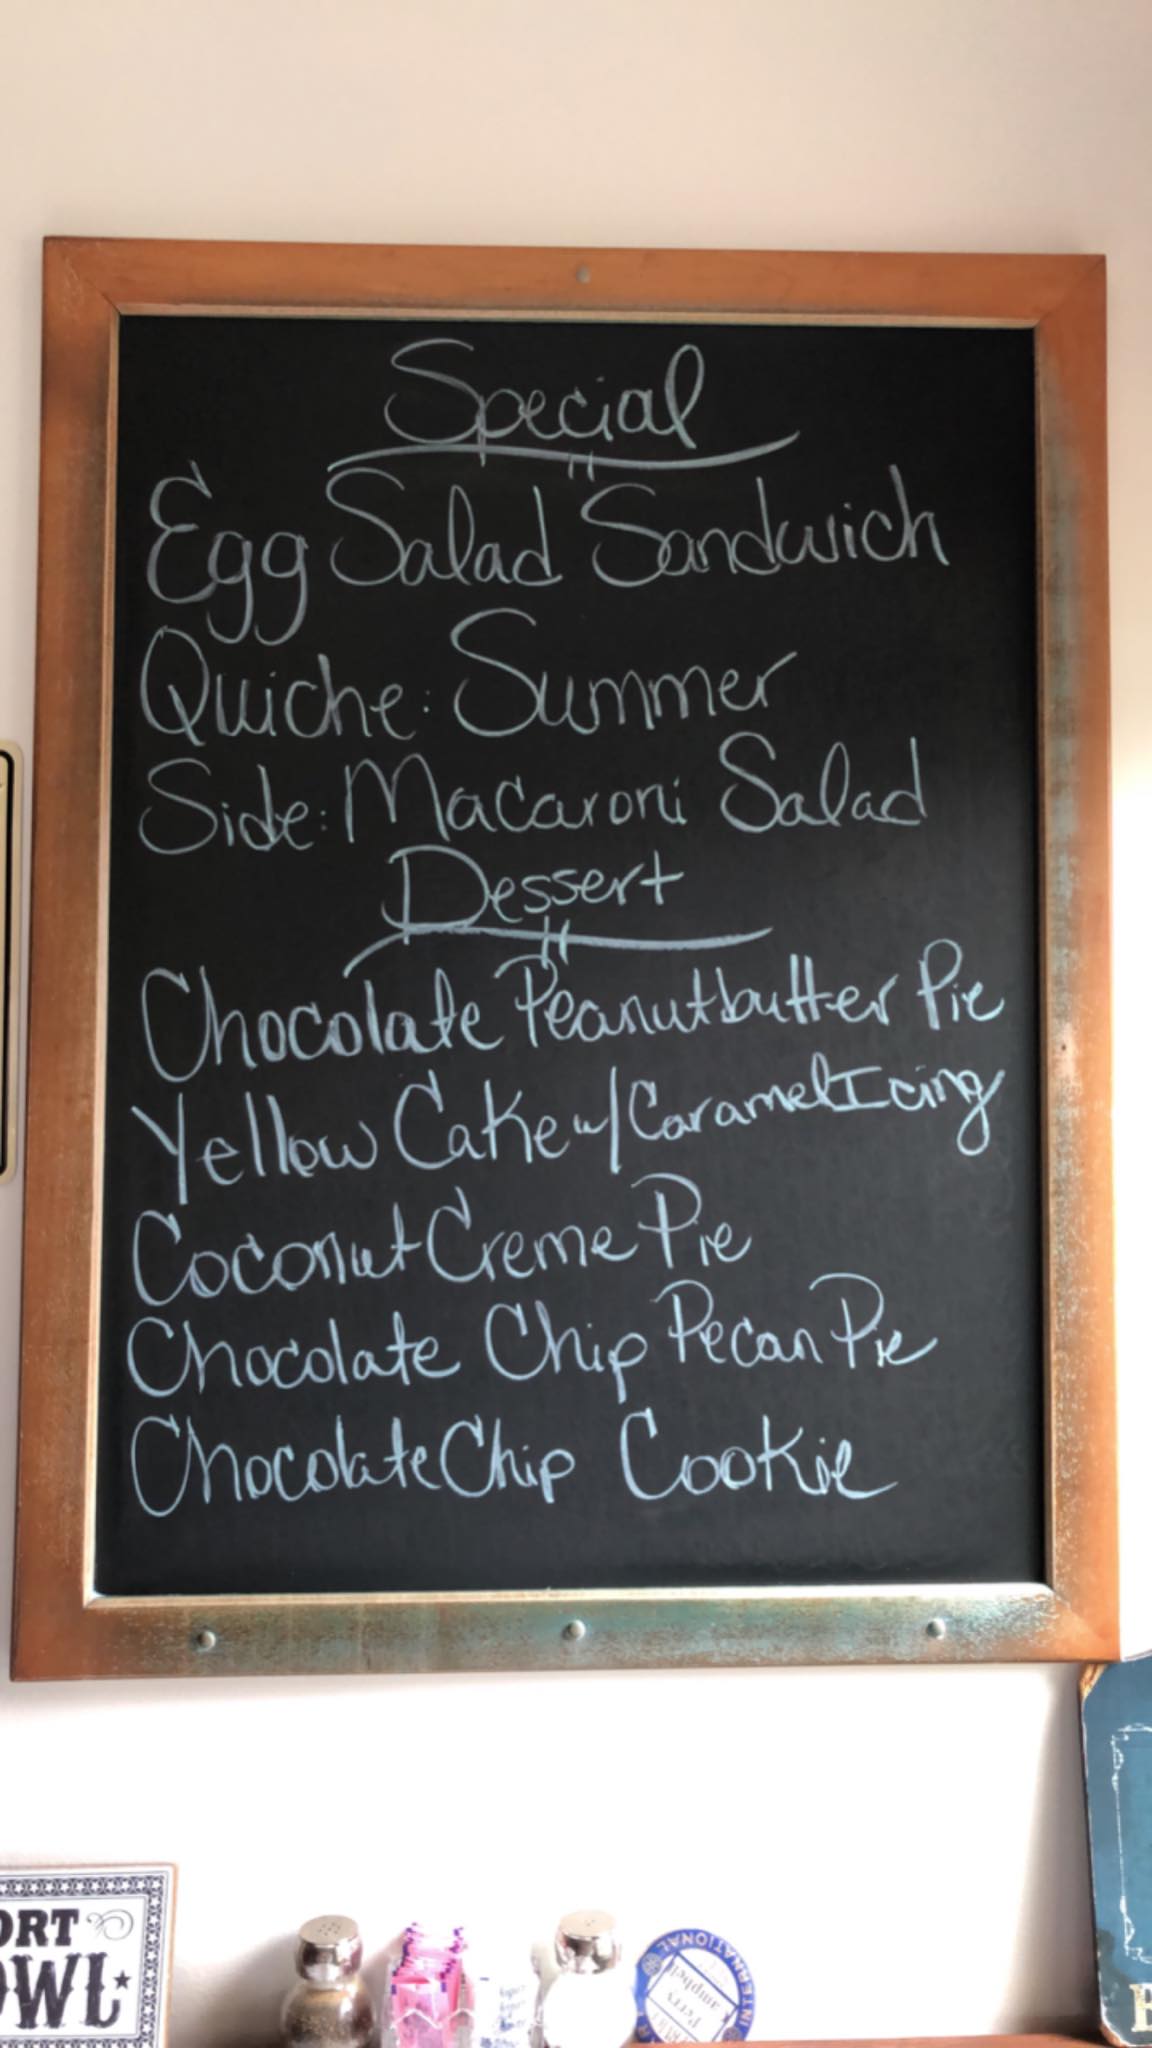 Special
Egg Salad Sandwich
Quiche: Summer
Side: Macaroni Salad
Dessert
Chocolate Peanutbutter Pie
Yellow Cake w/ Caramel Icing
Coconut Creme Pie
Chocolate Chip Pecan Pie
Chocolate Chip Cookie
ORT
OWL
INTERNATIONAL
Perry